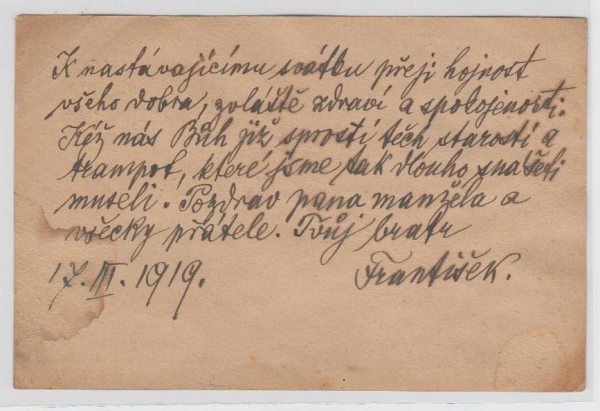 K nastávajícímu svátku přeji hojnost
všeho dobra, zvláště zdraví a spokojenosti.
Kéž nás Bůh již sprostí těch starostí a
trampot, které jsme tak dlouho snášeti
museli. Pozdrav pana manžela a
všecky přátele. Tvůj bratr
17. III. 1919. František.